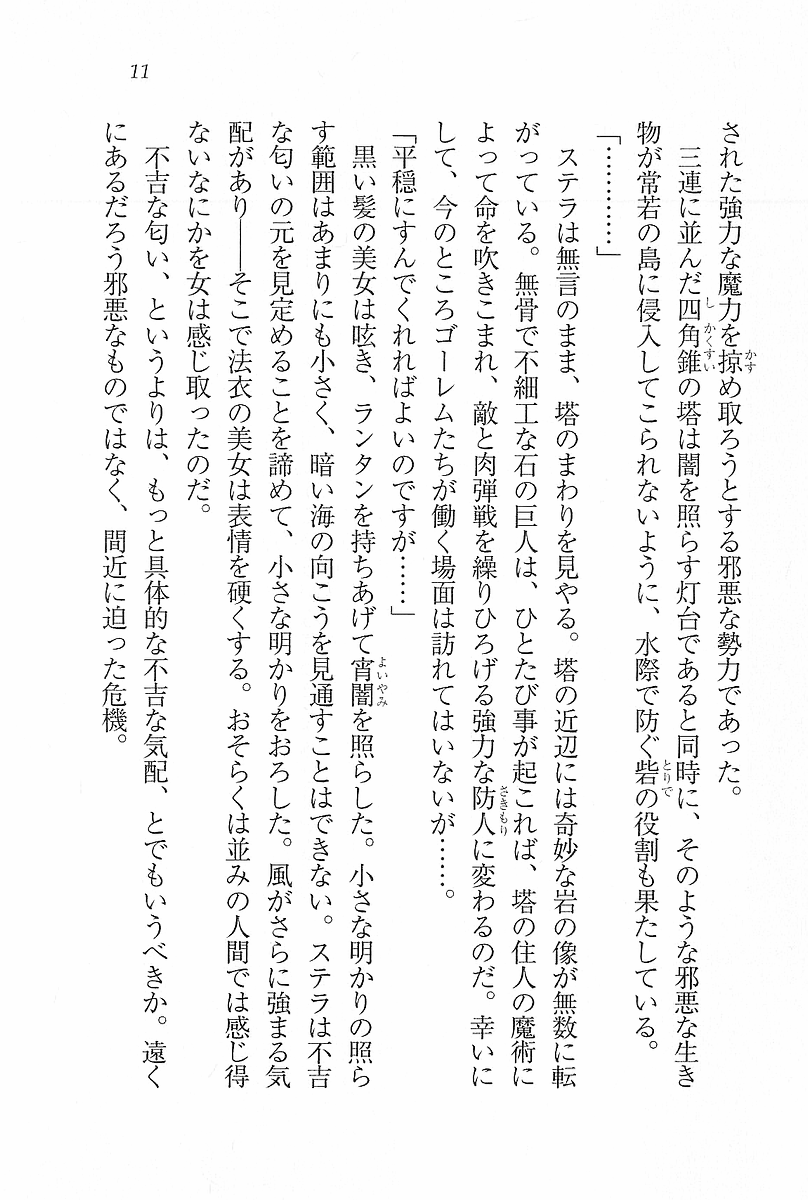 11
された強力な魔力を掠め取ろうとする邪悪な勢力であった。
三連に並んだ四角錐の塔は闇を照らす灯台であると同時に、そのような邪悪な生き
物が常若の島に侵入してこられないように、水際で防ぐ砦の役割も果たしている。
「…………」
ステラは無言のまま、塔のまわりを見やる。塔の近辺には奇妙な岩の像が無数に転
がっている。無骨で不細工な石の巨人は、ひとたび事が起これば、塔の住人の魔術に
よって命を吹きこまれ、敵と肉弾戦を繰りひろげる強力な防人に変わるのだ。幸いに
して、今のところゴーレムたちが働く場面は訪れてはいないが……。
「平穏にすんでくれればよいのですが……」
黒い髪の美女は呟き、ランタンを持ちあげて宵闇を照らした。小さな明かりの照ら
す範囲はあまりにも小さく、暗い海の向こうを見通すことはできない。ステラは不吉
な匂いの元を見定めることを諦めて、小さな明かりをおろした。風がさらに強まる気
配があり――そこで法衣の美女は表情を硬くする。おそらくは並みの人間では感じ得
ないなにかを女は感じ取ったのだ。
不吉な匂い、というよりは、もっと具体的な不吉な気配、とでもいうべきか。遠く
にあるだろう邪悪なものではなく、間近に迫った危機。